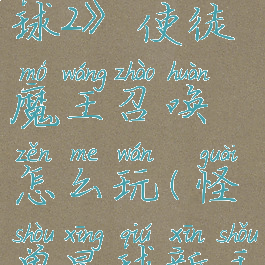 球2》 使徒
mó wáng zhào huàn
魔王召唤
zěn me wán ( guài
怎么玩(怪
shòu xīng qiú xīn shǒu